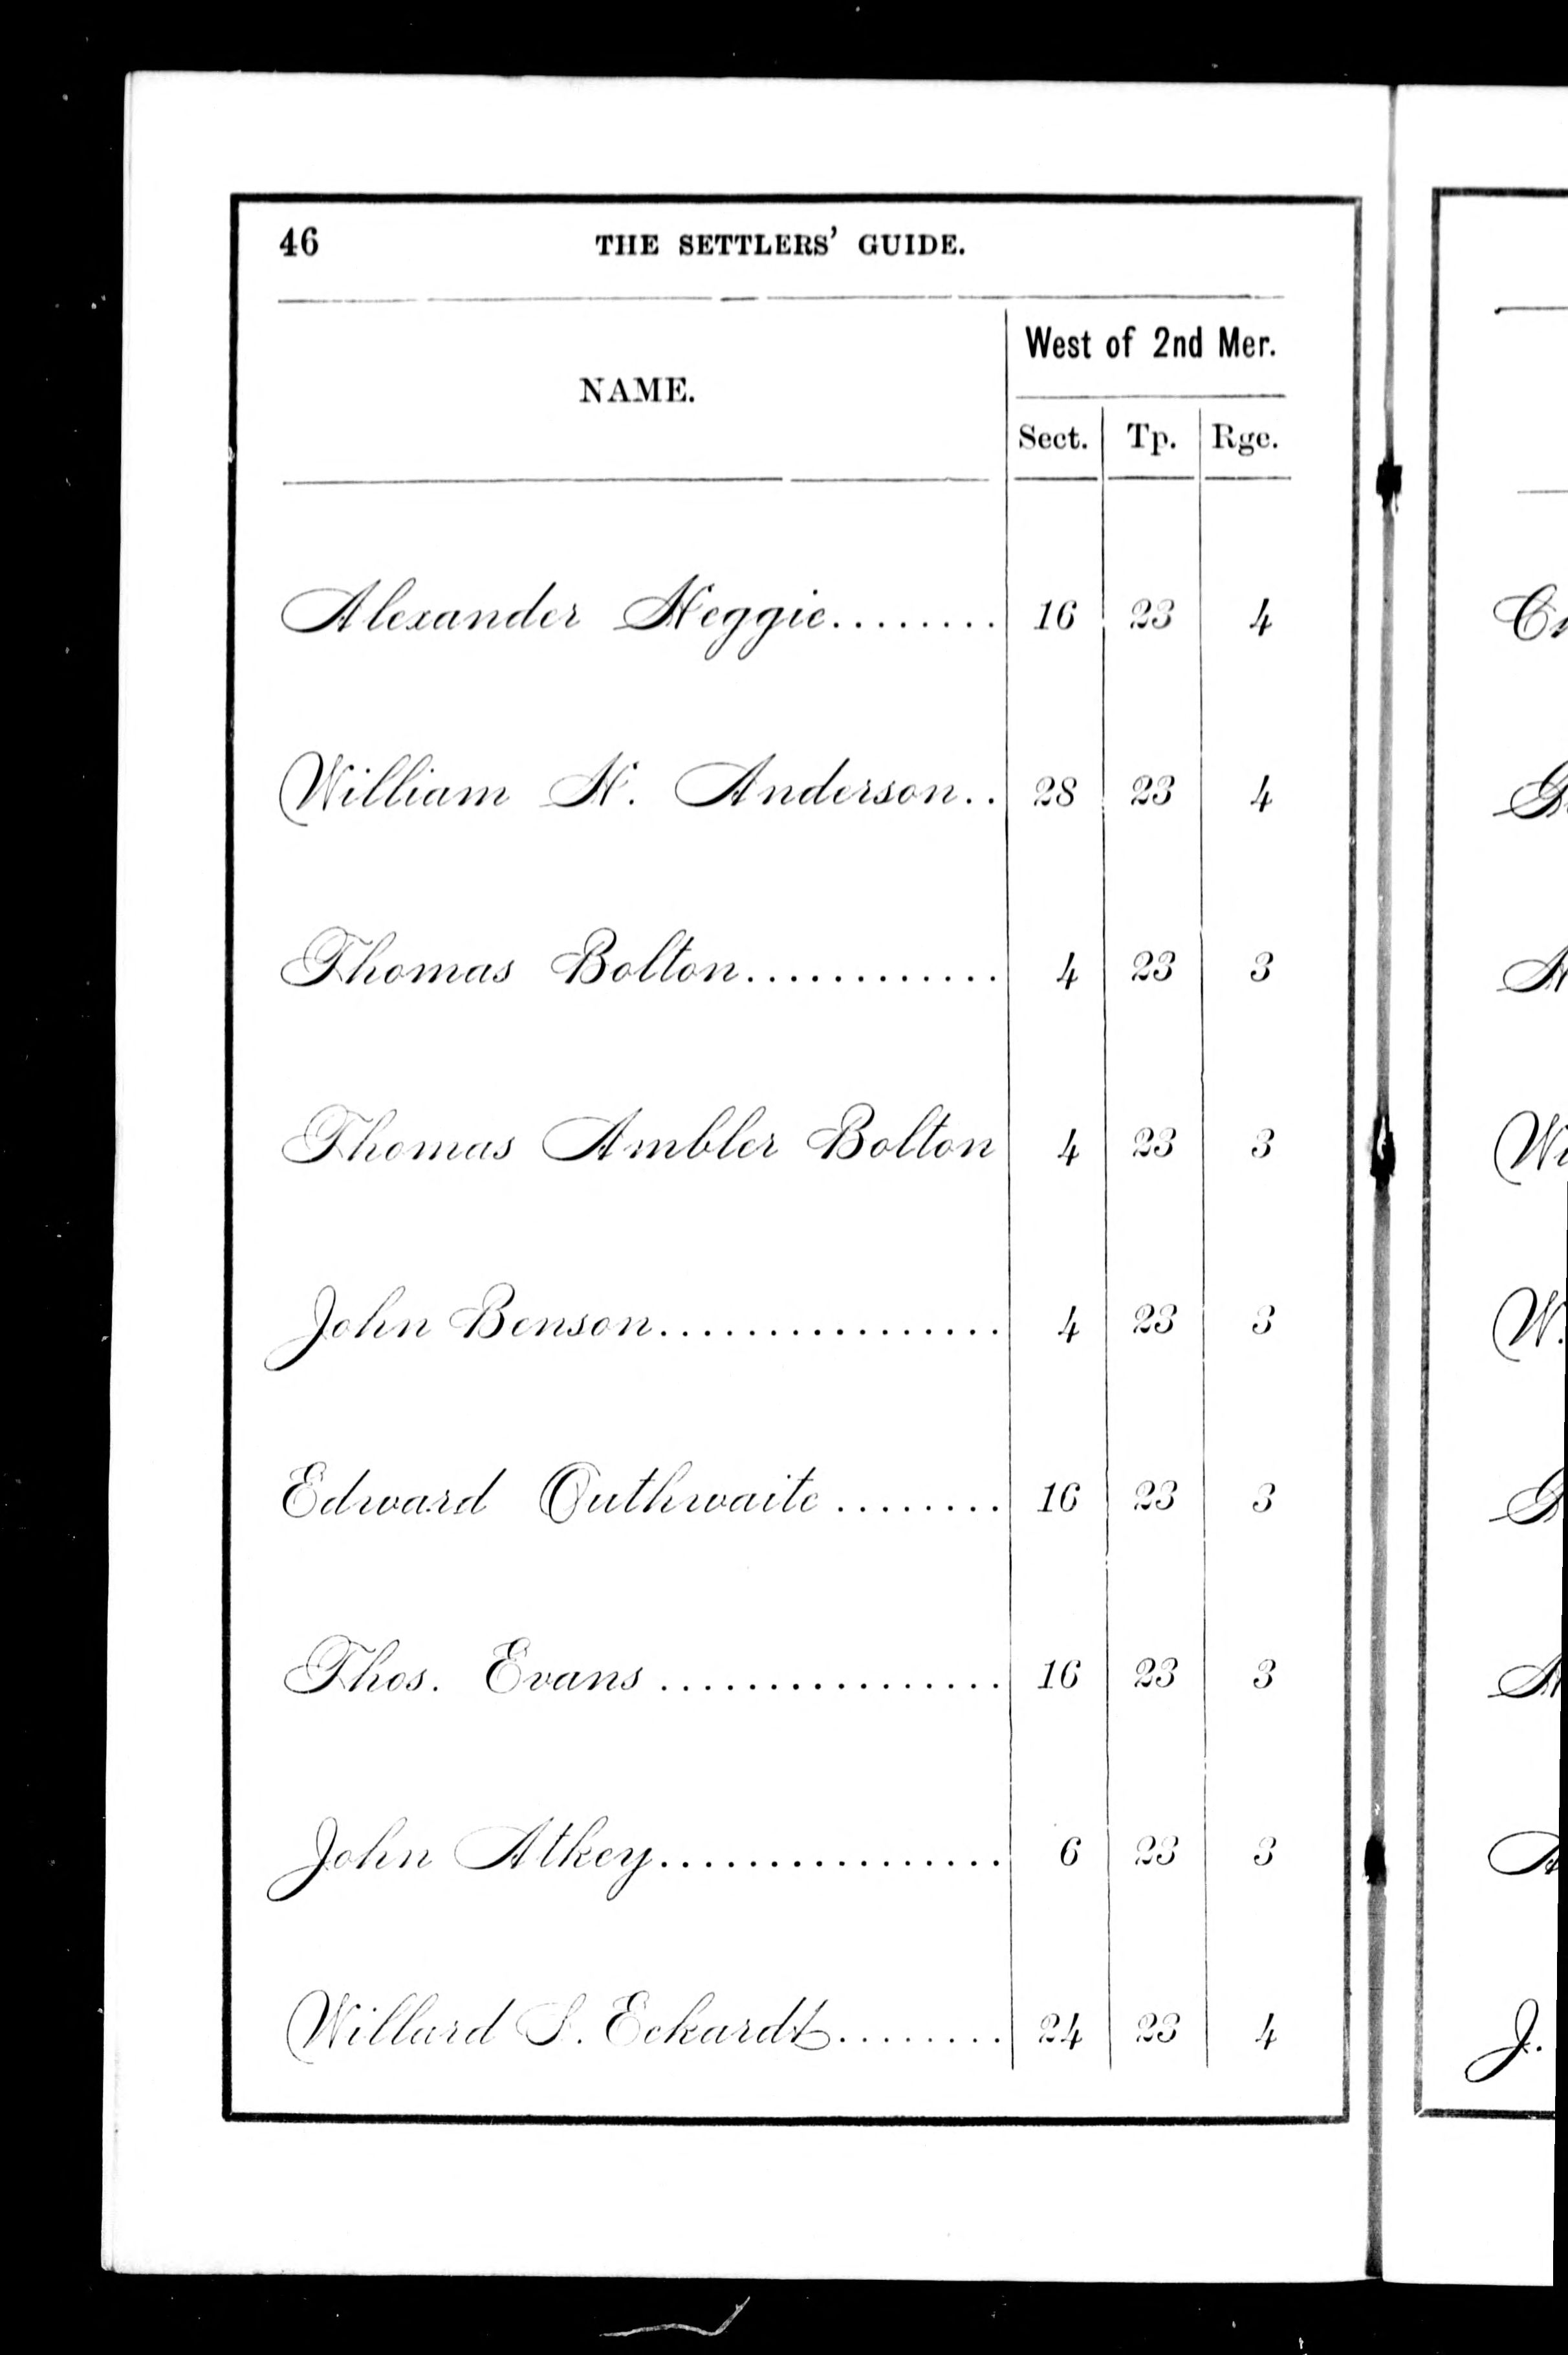 46 THE SETTLERS' GUIDE.
West of 2nd Mer.
NAME.
Sect. Tp. Rge.
Alexander Heggie........ 16 23 4
William H. Anderson.. 28 23 4
Thomas Bolton............ 4 23 3
Thomas Ambler Bolton 4 23 3
John Benson................ 4 23 3
Edward Outhwaite........ 16 23 3
Thos. Evans................ 16 23 3
John Atkey................ 6 23 3
Willard S. Eckardt........ 24 23 4